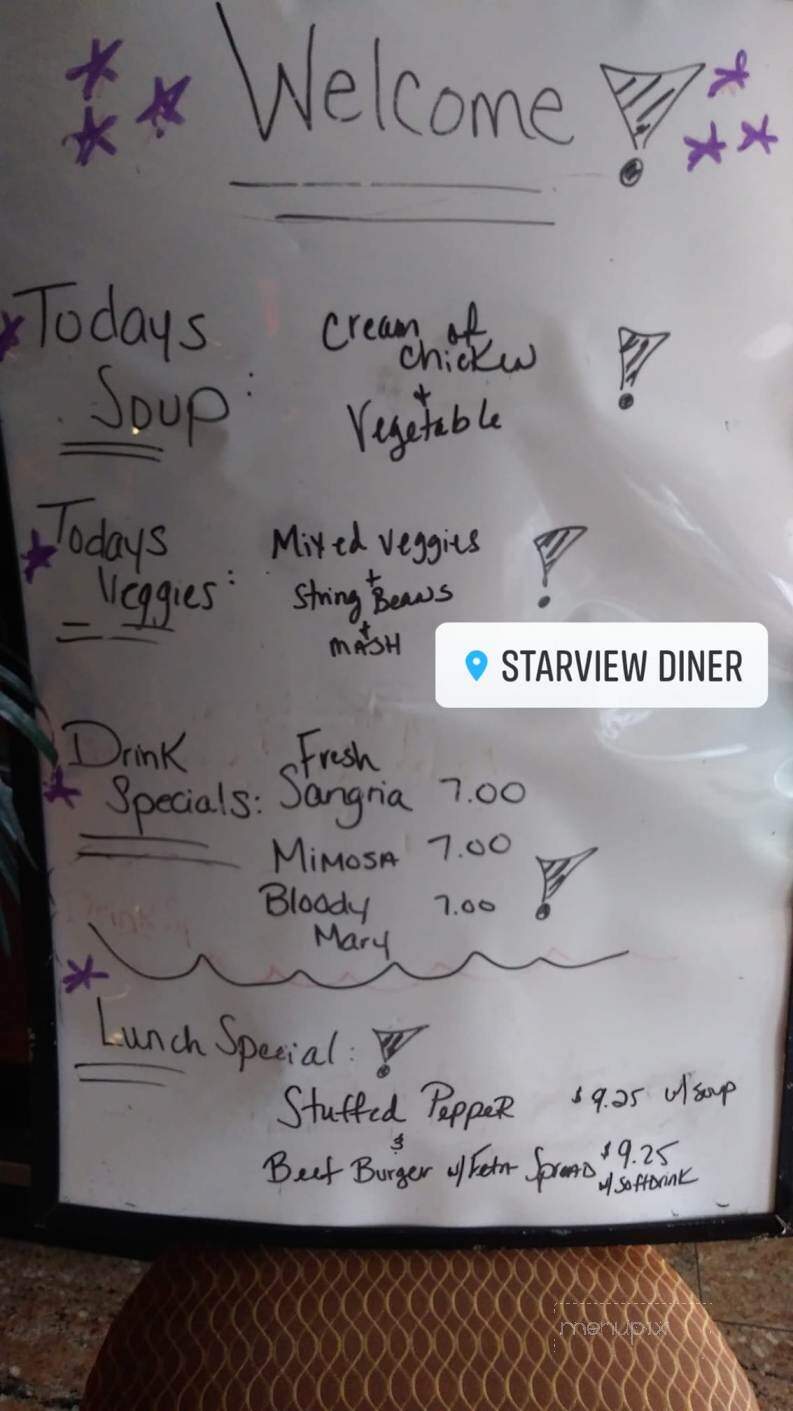 Welcome!
Todays
Soup:
Cream of
Chicken
+
Vegetable
!
Todays
Veggies:
Mixed veggies
+
String Beans
+
MASH
!
STARVIEW DINER
Drink
Specials:
Fresh
Sangria 7.00
MiMOSA 7.00
Bloody 7.00
Mary
!
Lunch Special: !
Stuffed PeppeR $9.25 w/soup
&
Beef Burger w/ Spread $9.25
w/softDrink
menupix